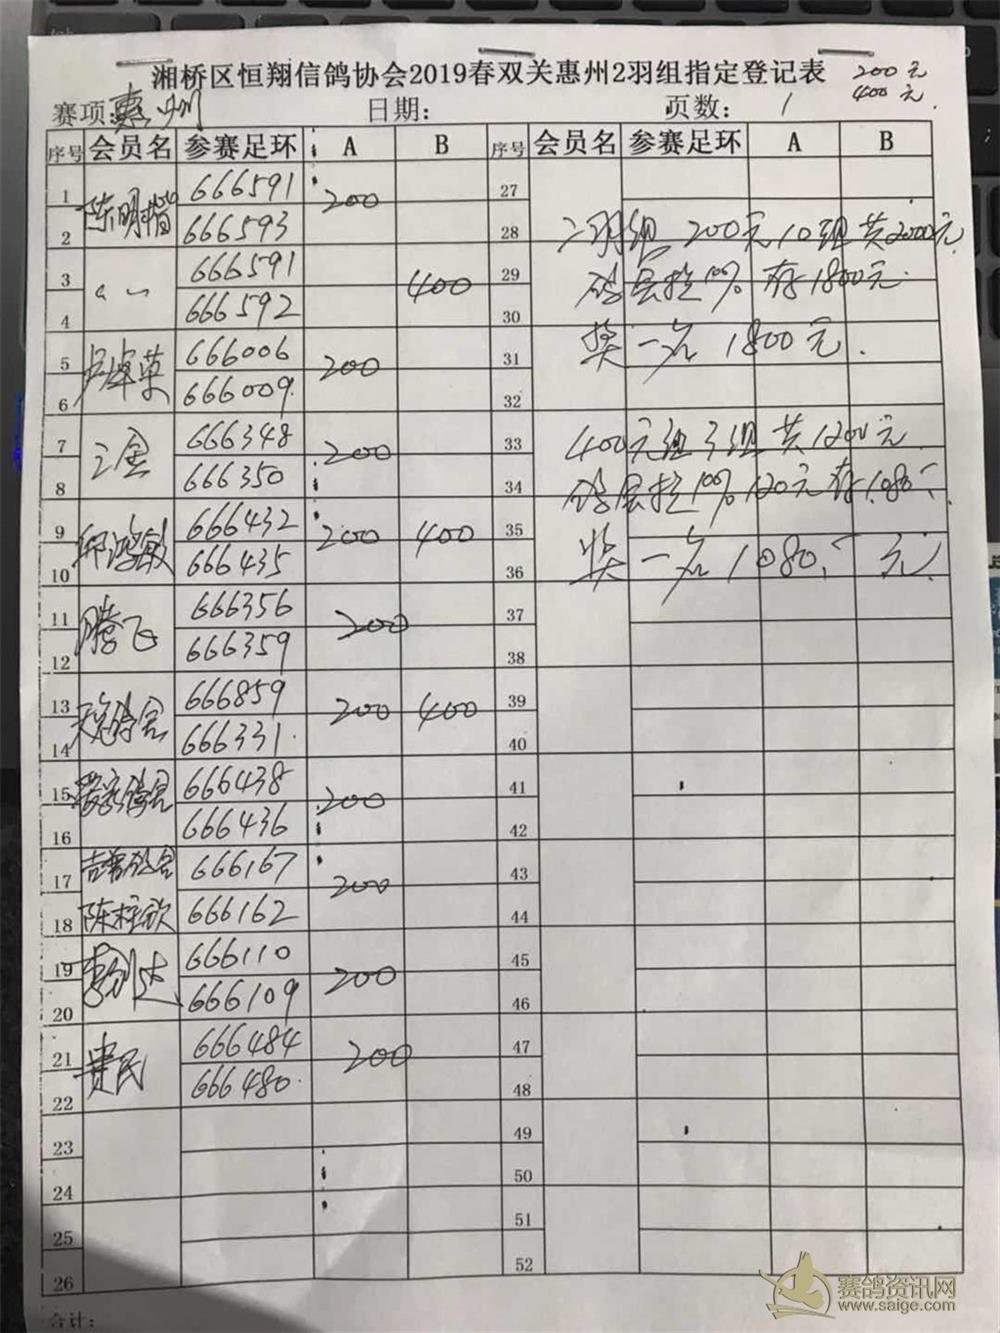 湘桥区恒翔信鸽协会2019春双关惠州2羽组指定登记表
200元
400元.
赛项: 惠州 日期: 页数: 1
序号 会员名 参赛足环 A B 序号 会员名 参赛足环 A B
1 陈明楷 666591 200 27
2 666593 28 二羽组 200元10组共2000元
3 〃 666591 400 29 10% 存1800元.
4 666592 30
5 卢卓英 666006 200 31 奖一名 1800元.
6 666009. 32
7 三金 666348 200 33 400元组3组共1200元
8 666350 34 10% 120元存1080
9 鸿敏 666432 200 400 35
10 666435 36 奖一名 1080. 元.
11 腾飞 666356 200 37
12 666359 38
13 666859 200 400 39
14 666331. 40
15 666438 200 41
16 666436 42
17 666167 200 43
18 陈柱钦 666162 44
19 李剑达 666110 200 45
20 666109 46
21 贵民 666484 200 47
22 666480. 48
23 49
24 50
25 51
26 52
合计:
赛鸽资讯网
www.saige.com